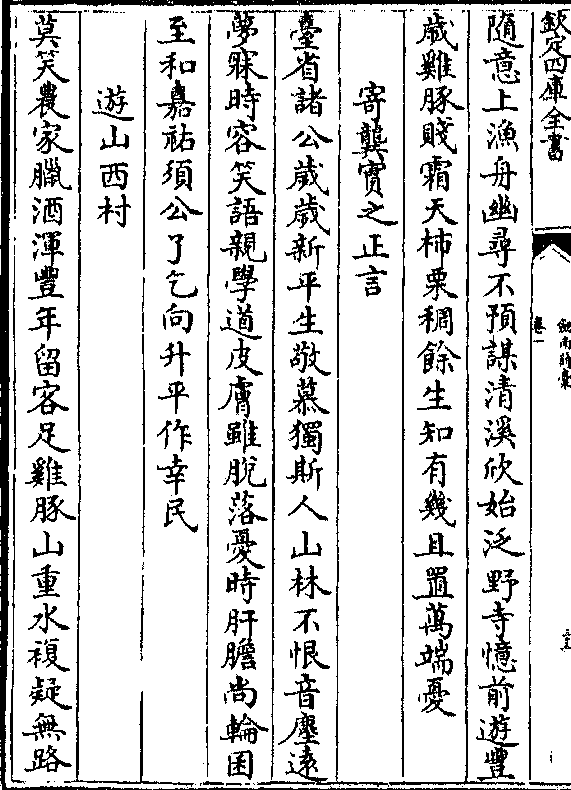 欽定四庫全書
劍南詩藁
卷一
隨意上漁舟幽尋不預謀清溪欣始泛野寺憶前遊豐
歳雞豚賤霜天柿栗稠餘生知有幾且置萬端憂
寄龔實之正言
臺省諸公歲歲新平生敬慕獨斯人山林不恨音塵遠
夢寐時容笑語親學道皮膚雖脫落憂時肝膽尚輪囷
至和嘉祐須公了乞向升平作幸民
遊山西村
莫笑農家臘酒渾豐年留客足雞豚山重水複疑無路